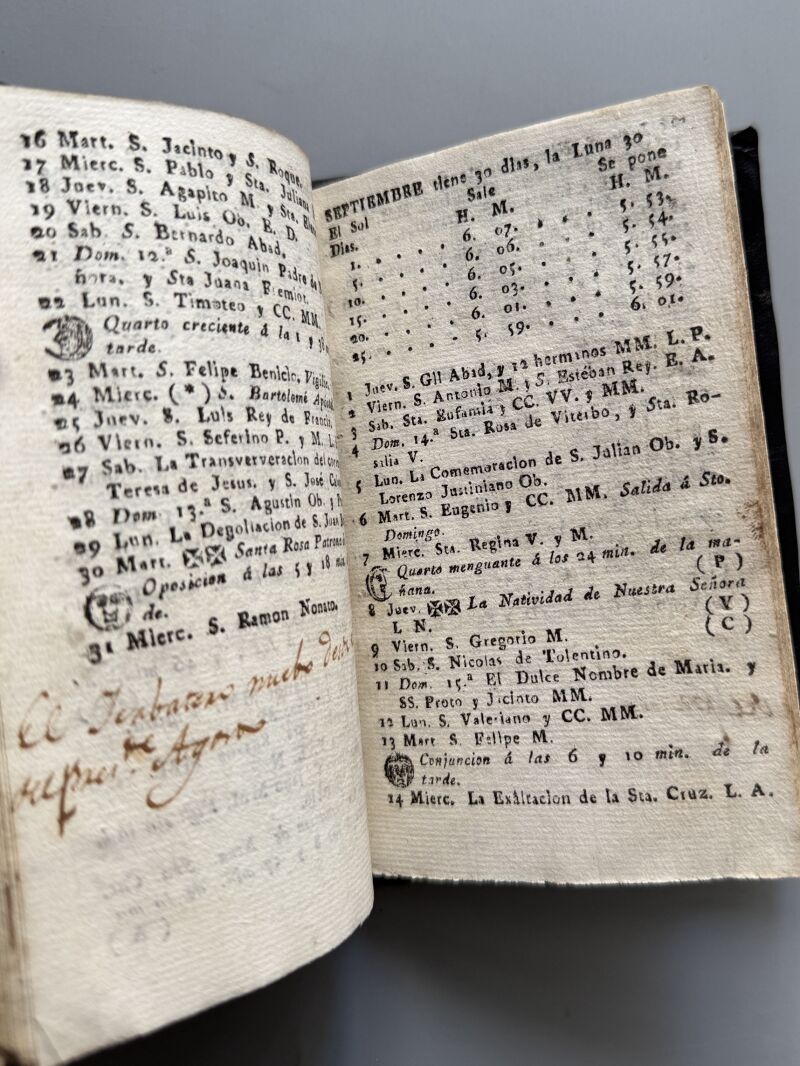 16 Mart. S. Jacinto y S. Roque.
17 Mierc. S. Pablo y Sta. Juliana
18 Juev. S. Agapito M. y Sta.
19 Viern. S. Luis Ob. E. D.
20 Sab. S. Bernardo Abad.
21 Dom. 12.ª S. Joaquin Padre de
ñora, y Sta Juana Fremiot.
22 Lun. S. Timoteo y CC. MM.
Quarto creciente á la 1 y 38
tarde.
23 Mart. S. Felipe Benicio. Vigilia
24 Mierc. (*) S. Bartolomé
25 Juev. S. Luis Rey de Francia
26 Viern. S. Seferino P. y M. L.
27 Sab. La Transververacion del
Teresa de Jesus. y S. José
28 Dom. 13.ª S. Agustin Ob. y
29 Lun. La Degollacion de S. Juan
30 Mart. Santa Rosa Patrona
Oposicion á las 5 y 18
de.
31 Mierc. S. Ramon Nonato.
El mucho
de
SEPTIEMBRE tiene 30 dias, la Luna 30
El Sol Sale Se pone
Dias. H. M. H. M.
1. . . . . . 6. 07. . . . . 5. 53.
5. . . . . . 6. 06. . . . . 5. 54.
10. . . . . . 6. 05. . . . . 5. 55.
15. . . . . . 6. 03. . . . . 5. 57.
20. . . . . . 6. 01. . . . . 5. 59.
25. . . . . . 5. 59. . . . . 6. 01.
1 Juev. S. Gil Abad, y 12 herminos MM. L. P.
2 Viern. S. Antonio M. y S. Estéban Rey. E. A.
3 Sab. Sta. Eufamia y CC. VV. y MM.
4 Dom. 14.ª Sta. Rosa de Viterbo, y Sta. Ro-
salia V.
5 Lun. La Comemoracion de S. Julian Ob. y S.
Lorenzo Justiniano Ob.
6 Mart. S. Eugenio y CC. MM. Salida á Sto.
Domingo.
7 Mierc. Sta. Regina V. y M.
Quarto menguante á los 24 min. de la ma-
ñana. ( P )
8 Juev. La Natividad de Nuestra Señora
L N. ( V )
9 Viern. S. Gregorio M. ( C )
10 Sab. S. Nicolas de Tolentino.
11 Dom. 15.ª El Dulce Nombre de Maria. y
SS. Proto y Jacinto MM.
12 Lun. S. Valeriano y CC. MM.
13 Mart S. Felipe M.
Conjuncion á las 6 y 10 min. de la
tarde.
14 Mierc. La Exâltacion de la Sta. Cruz. L. A.